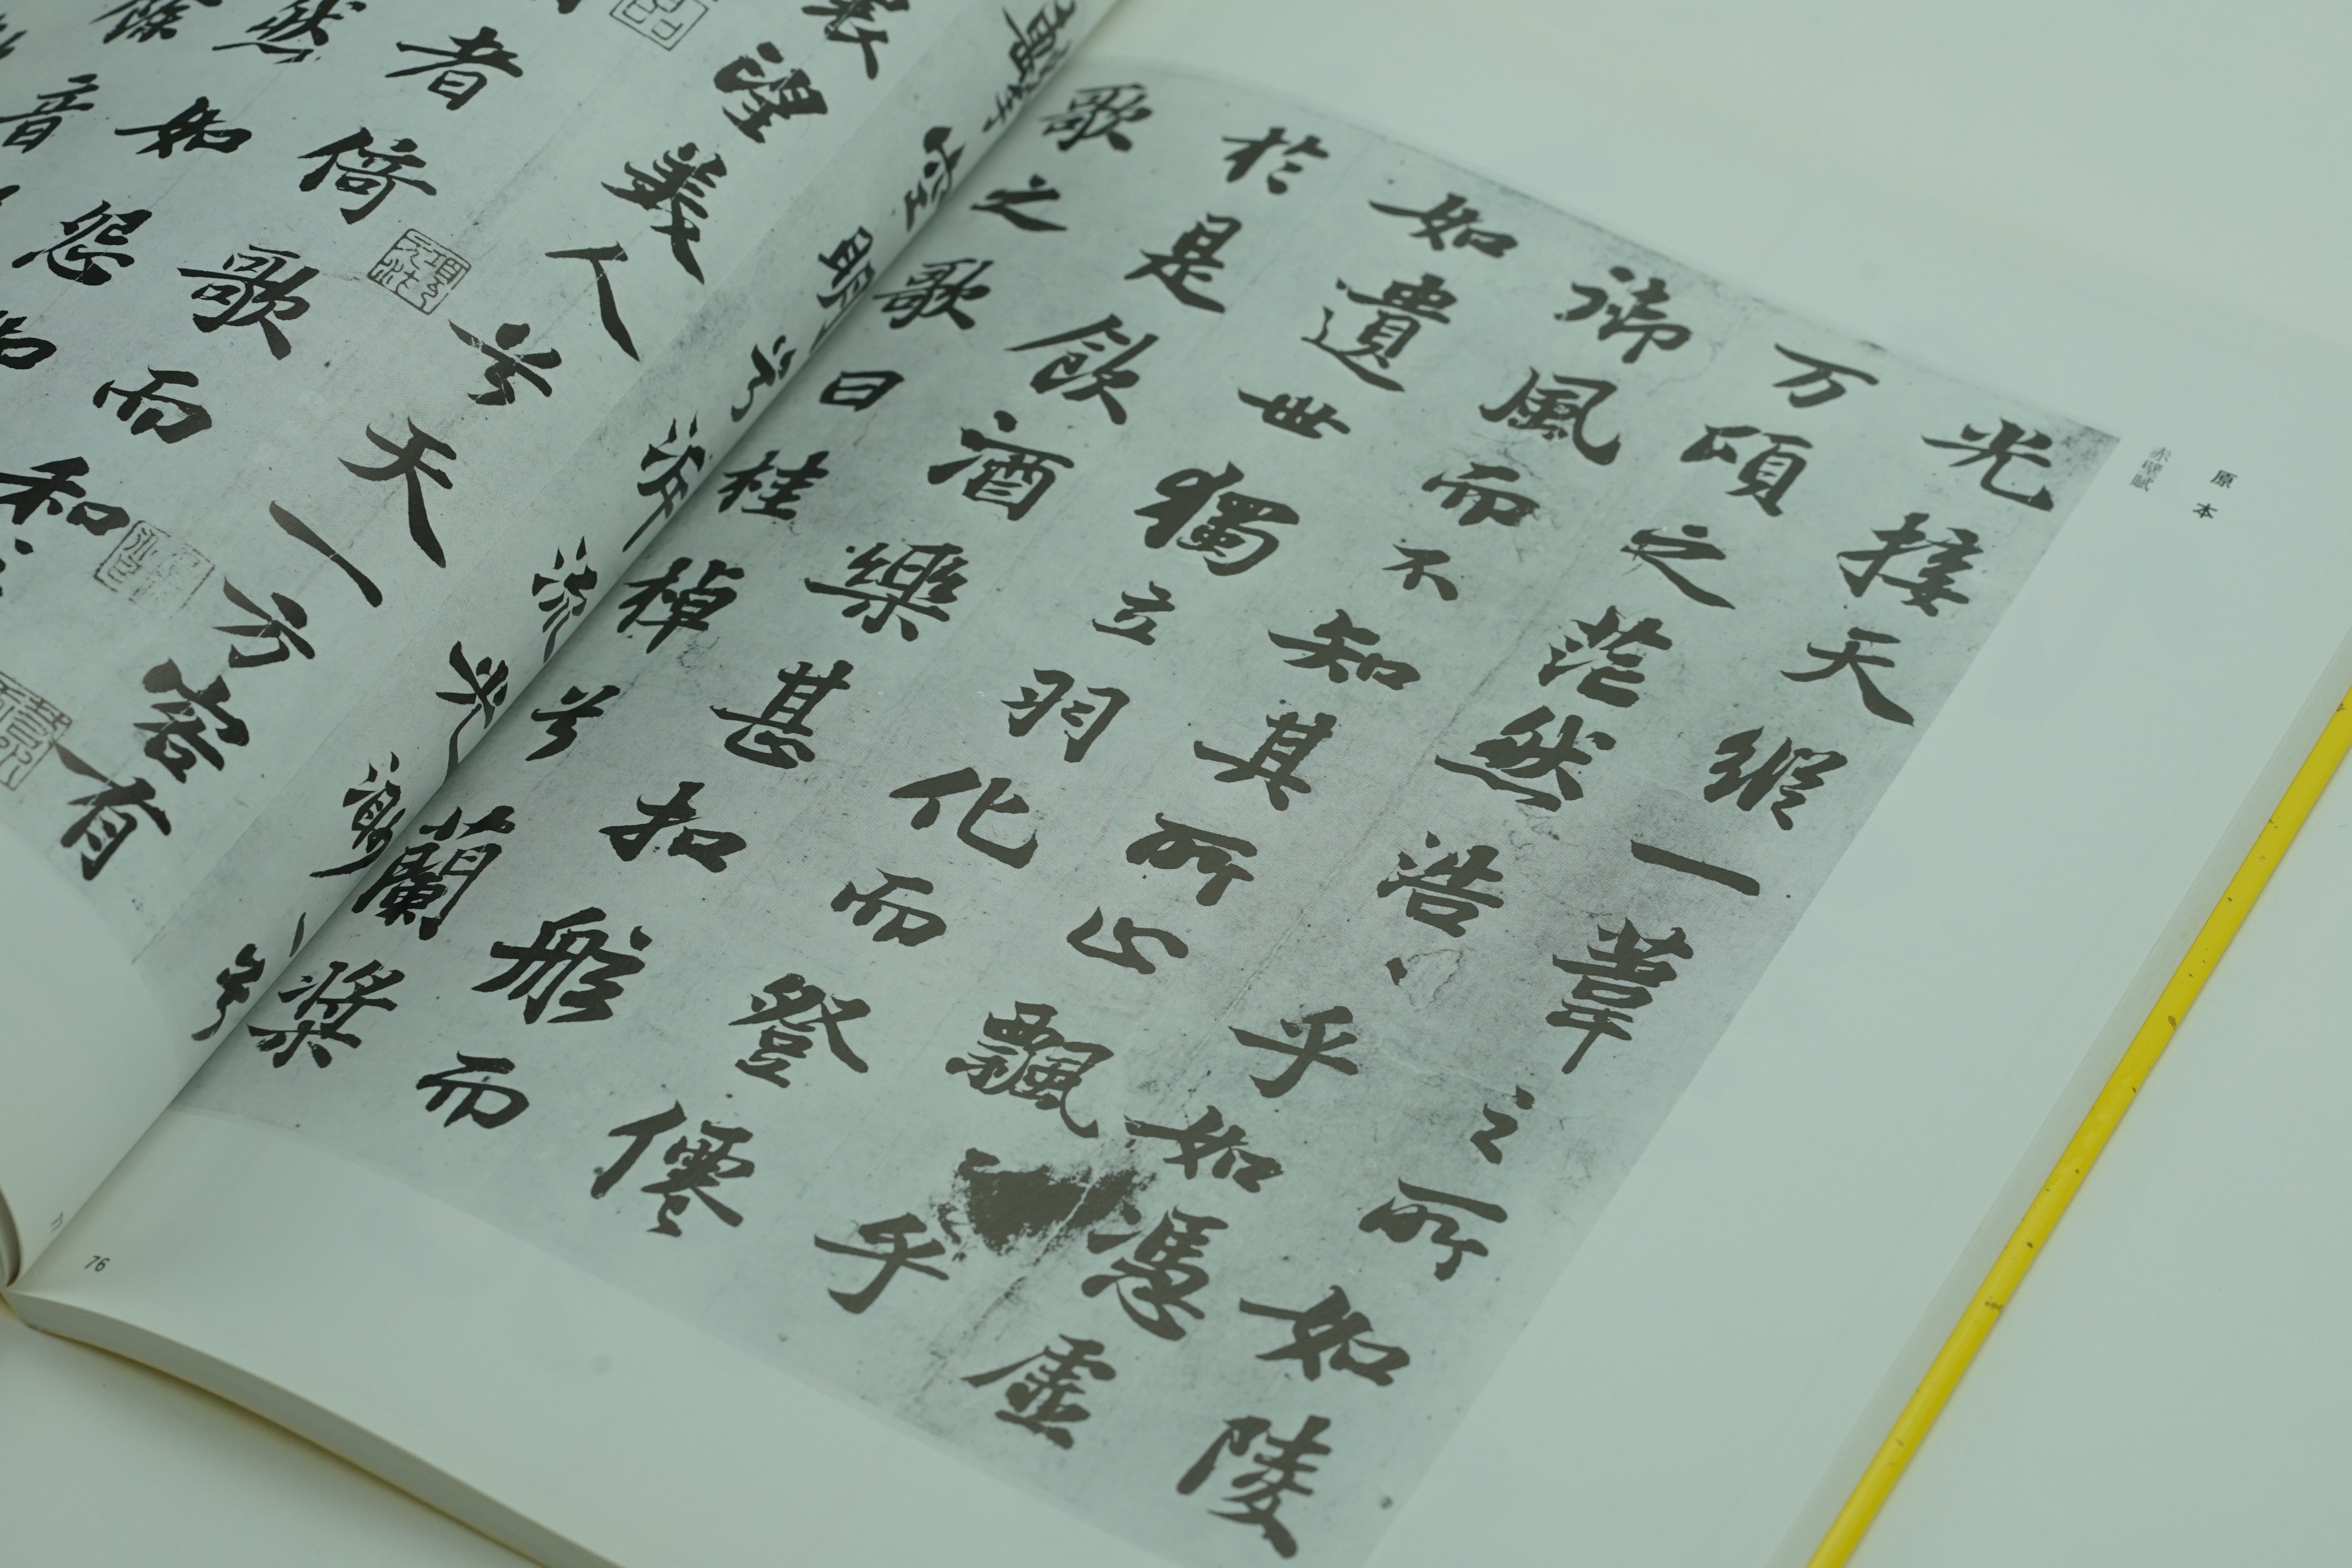 原本
赤壁賦
光接天縱一葦之所如陵
万頃之茫然浩〻乎如憑虛
御風而不知其所止飄乎
如遺世獨立羽化而登僊
於是飲酒樂甚扣舷而
歌之歌曰桂棹兮蘭槳
擊空明兮泝流光渺兮
望美人兮天一方客有
者倚歌而和
然如怨
餘音
76